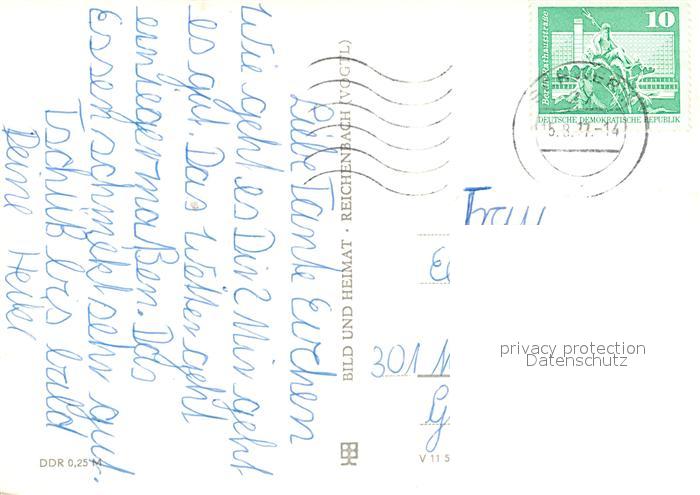 Liebe Tante Evchen
Wie geht es Dir? Mir geht
es gut. Das Wetter geht
einigermaßen. Das
Essen schmekt sehr gut.
Tschüß bis bald
Deine Heike
BILD UND HEIMAT · REICHENBACH (VOGTL)
DDR 0,25 M
V 11 5
Berlin, Rathausstraße
10
DEUTSCHE DEMOKRATISCHE REPUBLIK
15.8.77-14
Frau
301 M
privacy protection
Datenschutz